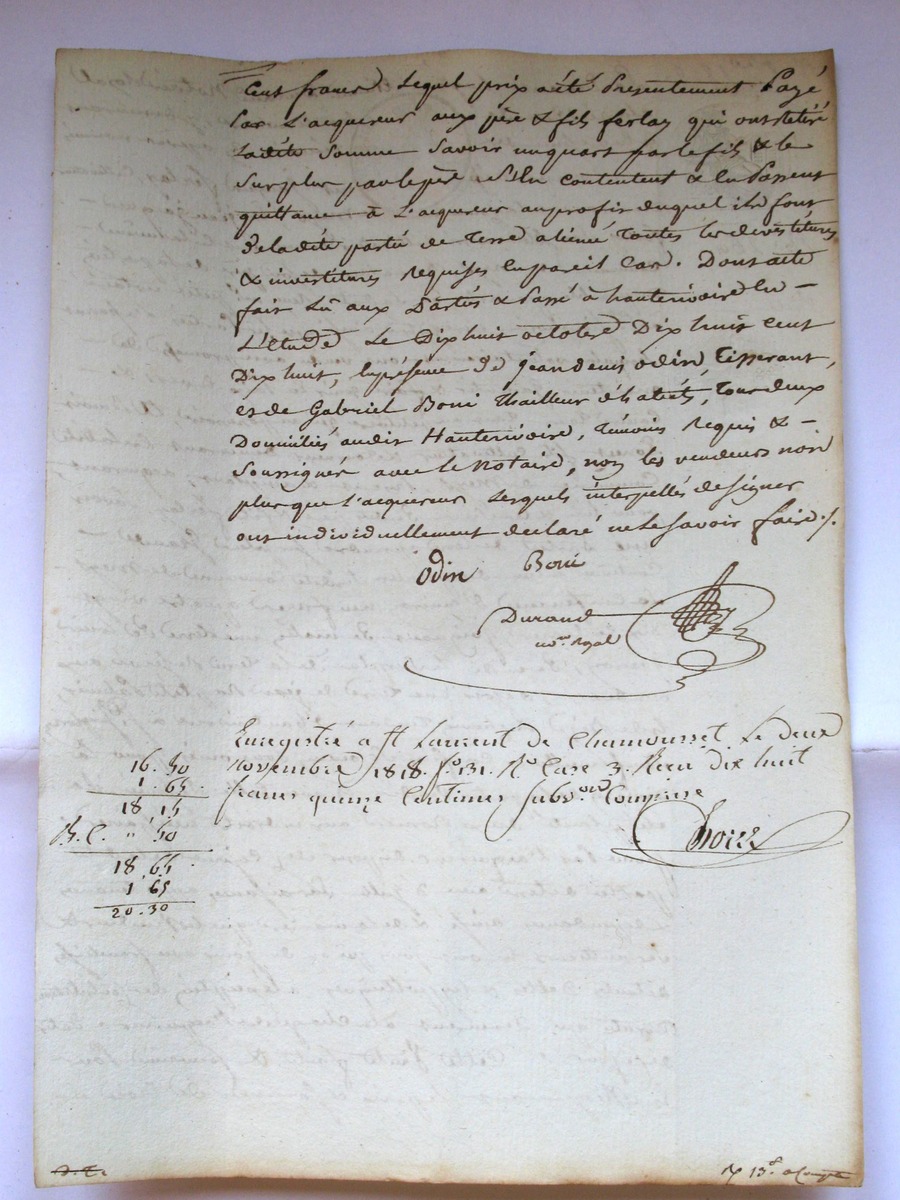 Cent francs Lequel prix a été Presentement Payé
Par L'acquereur aux père & fils ferlay qui ont retiré
Ladite Somme Savoir un quart par le fils & le
Surplus par le père s'en contentent & en Passent
quittance à L'acquereur au profit duquel ils font
de ladite partie de Terre aliénée Toutes les devestitures
& investitures Requises en pareil Cas. Dont acte
fait Lû aux Parties & Passé à hauterivoire en –
L'etude Le Dix huit octobre Dix huit Cent
Dix huit, en présence de jean denis odin, Tisserant,
et de Gabriel Boni Thailleur d'habits, Tous deux
Domiciliés audit Hauterivoire, Témoins Requis & –
Soussignés avec le Notaire, non les vendeurs non
plus que L'acquereur Lesquels interpellés de signer
ont individuellement declaré ne Le Savoir faire ./.
Odin Boni
Durand
no.re Royal
Enregistré a St Laurent de Chamousset Le deux
novembre 1818. fo. 131. Ro Case 3. Recu dix huit
francs quinze Centimes Subv.on Comprise
16. 50
1. 65
18 15
B. C. " 50
18. 65
1 65
20. 30